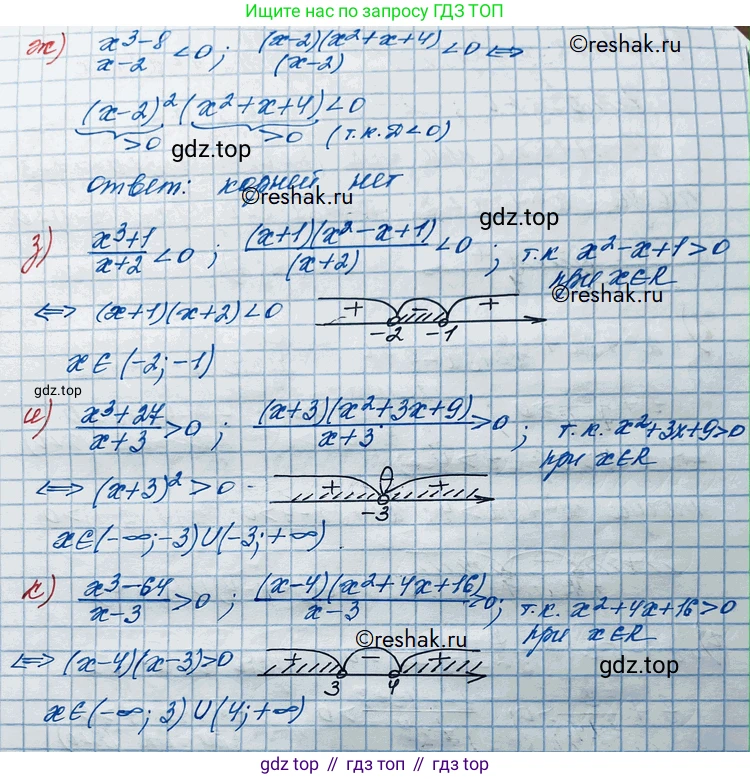 Ищите нас по запросу ГДЗ ТОП
ж) x³-8/x-2 <0; (x-2)(x²+x+4)/(x-2) <0 ⇔
©reshak.ru
(x-2)² (x²+x+4)<0
>0 >0 (т.к. Д<0)
gdz.top
ответ: корней нет
©reshak.ru
gdz.top
з) x³+1/x+2 <0; (x+1)(x²-x+1)/(x+2) <0; т.к x²-x+1>0
при x∈R
©reshak.ru
⇔ (x+1)(x+2)<0 + - +
-2 -1
x∈(-2;-1)
gdz.top
и) x³+27/x+3 >0; (x+3)(x²+3x+9)/x+3 >0; т.к. x²+3x+9>0
при x∈R
⇔ (x+3)²>0 - + +
-3
x∈(-∞;-3)∪(-3;+∞)
к) x³-64/x-3 >0; (x-4)(x²+4x+16)/x-3 >0; т.к. x²+4x+16>0
при x∈R
©reshak.ru
⇔ (x-4)(x-3)>0 + - +
3 4
gdz.top
x∈(-∞;3)∪(4;+∞)
gdz.top // гдз топ // gdz.top // гдз топ // gdz.top